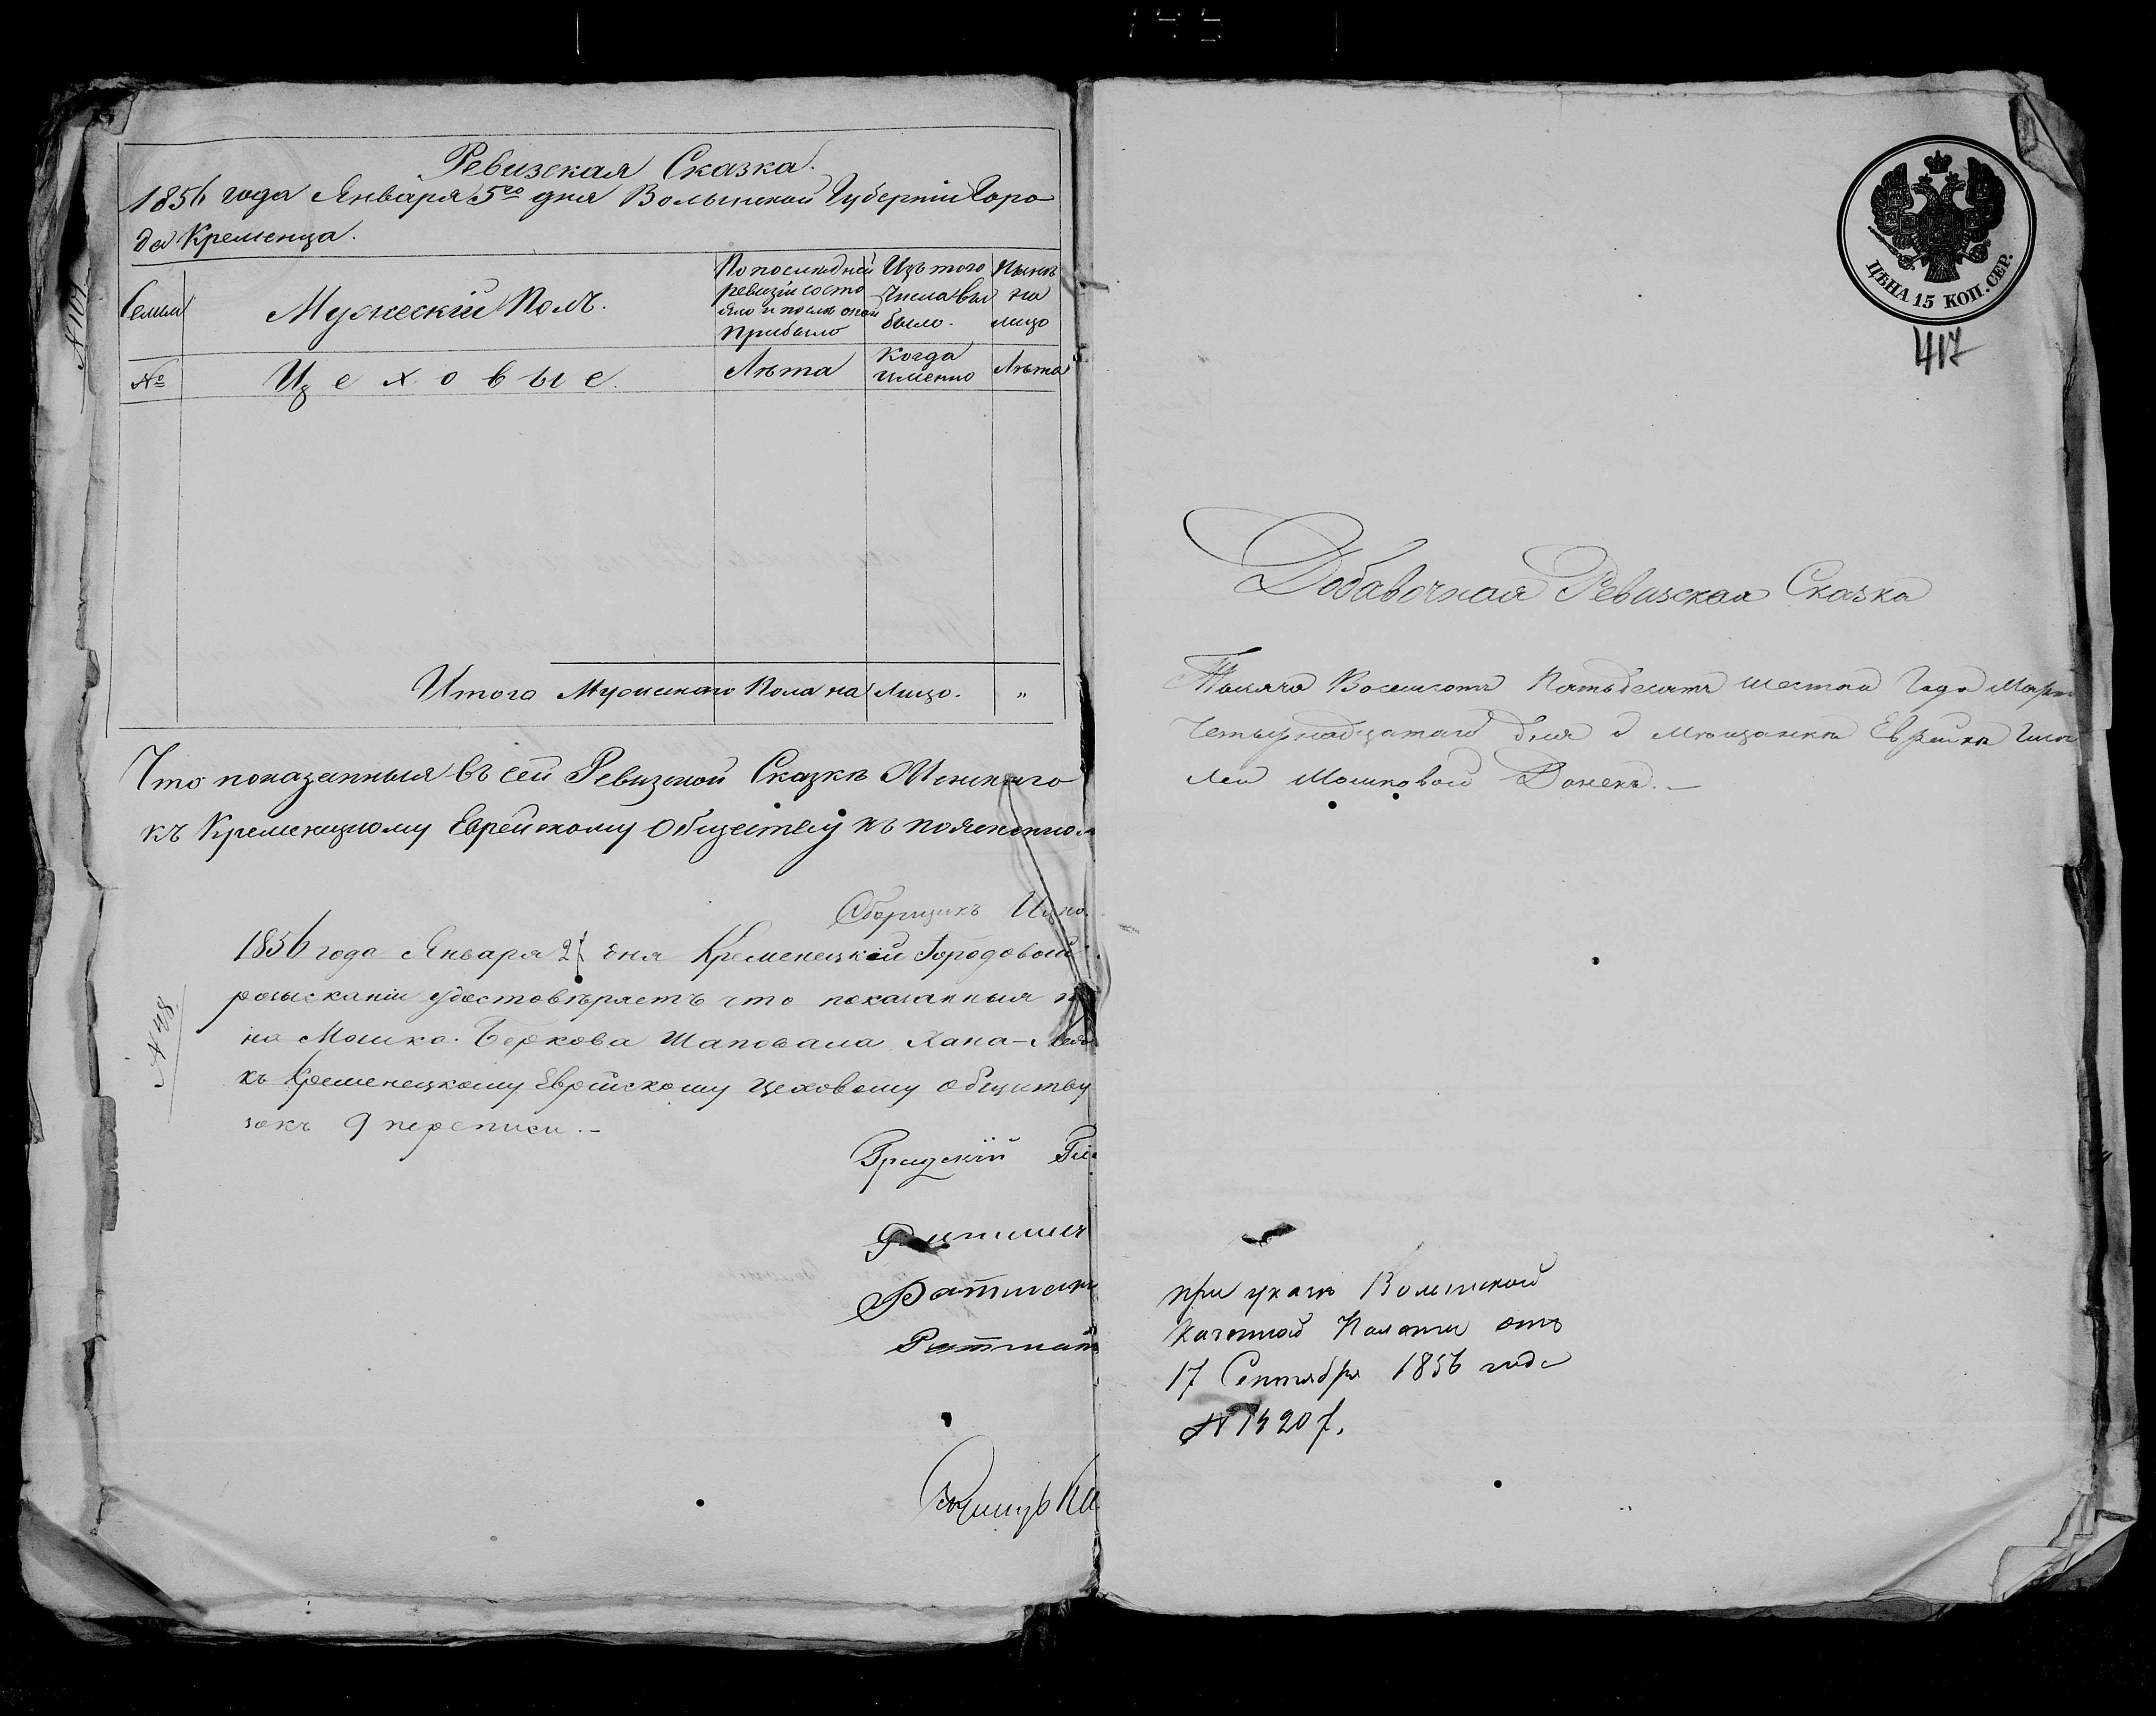 Ревизская Сказка.
1856 года Января 5го дня Волынской Губерніи Горо
да Кременца.
Семьи
Мужескій Полъ.
По последней ревизіи состояло и после оной прибыло
Изъ того числа выбыло.
Ныне на лицо
№
Цеховые.
Лѣта
Когда именно
Лѣта
Итого Мужескаго Пола на Лицо. "
Что показанныя въ сей Ревизской Сказкѣ Женскаго
къ Кременецкому Еврейскому Обществу
Сборщикъ
1856 года Января дня Кременецкій Городовой
розысканіи удостовѣряетъ что показанныя
на Мошка Беркова Шаповала Хана-
къ Кременецкому Еврейскому Цеховому обществу
9 переписи.-
№ 48
Ратманъ
Ратманъ
Ратманъ
ЦѢНА 15 КОП. СЕР.
417
Добавочная Ревизская Сказка
Тысяча Восемсотъ Пятьдесятъ шестаго Года Марта
Четырнадцатаго дня о Мѣщанкѣ Еврейкѣ
Мошковой
при указѣ Волынской
Казенной Палаты отъ
17 Сентября 1856 года
№